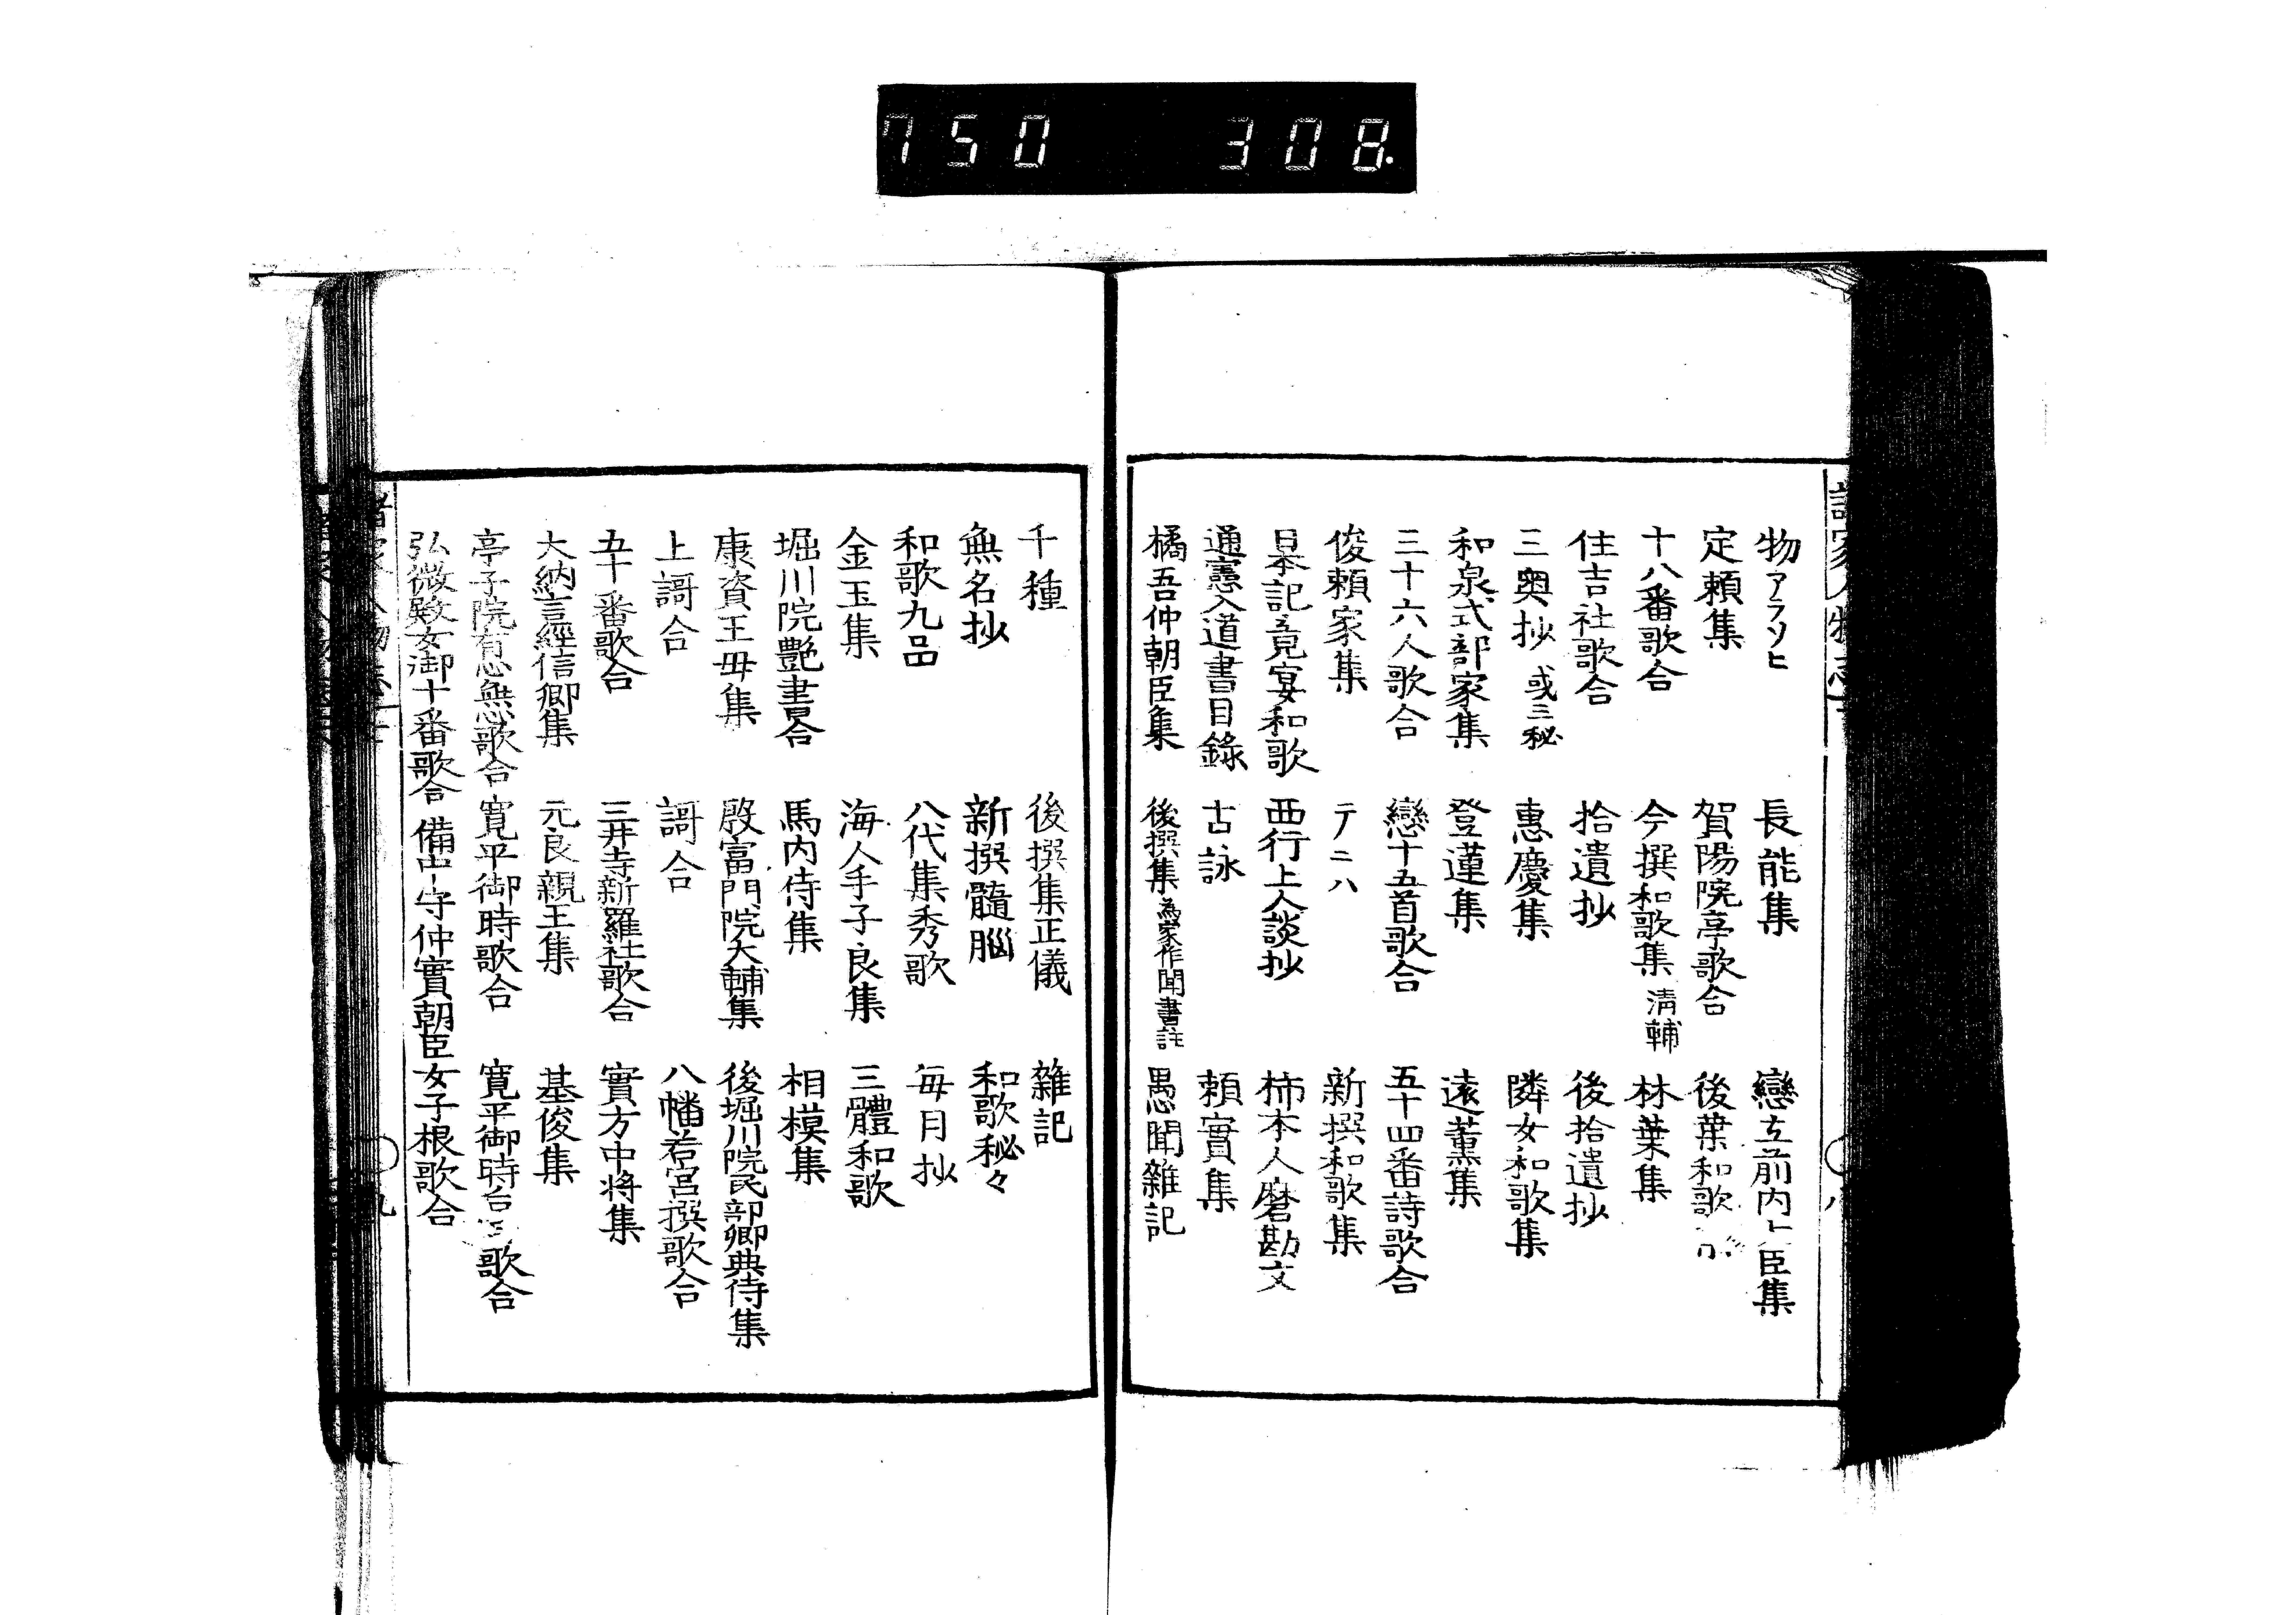 750 308.
物アラソヒ 長能集 戀立前内 臣集
定頼集 賀陽院亭歌合 後葉和歌
十八番歌合 今撰和歌集 淸輔 林葉集
住吉社歌合 拾遺抄 後拾遺抄
三奥抄 或三秘 惠慶集 隣女和歌集
和泉式部家集 登蓮集 遠薫集
三十六人歌合 戀十五首歌合 五十四番詩歌合
俊頼家集 テニハ 新撰和歌集
日本記竟宴和歌 西行上人談抄 柿本人麿勘文
通憲入道書目錄 古詠 頼實集
橘吾仲朝臣集 後撰集 為家作聞書註 愚聞雜記
千種 後撰集正儀 雜記
無名抄 新撰髓腦 和歌秘々
和歌九品 八代集秀歌 每月抄
金玉集 海人手子良集 三體和歌
堀川院艶書合 馬内侍集 相模集
康資王毋集 殷富門院大輔集 後堀川院民部卿典侍集
上謌合 謌合 八幡若宮撰歌合
五十番歌合 三井寺新羅社歌合 實方中将集
大納言經信卿集 元良親王集 基俊集
亭子院有心無心歌合 寛平御時歌合 寛平御時台 歌合
弘微殿女御十番歌合 備中守仲實朝臣女子根歌合